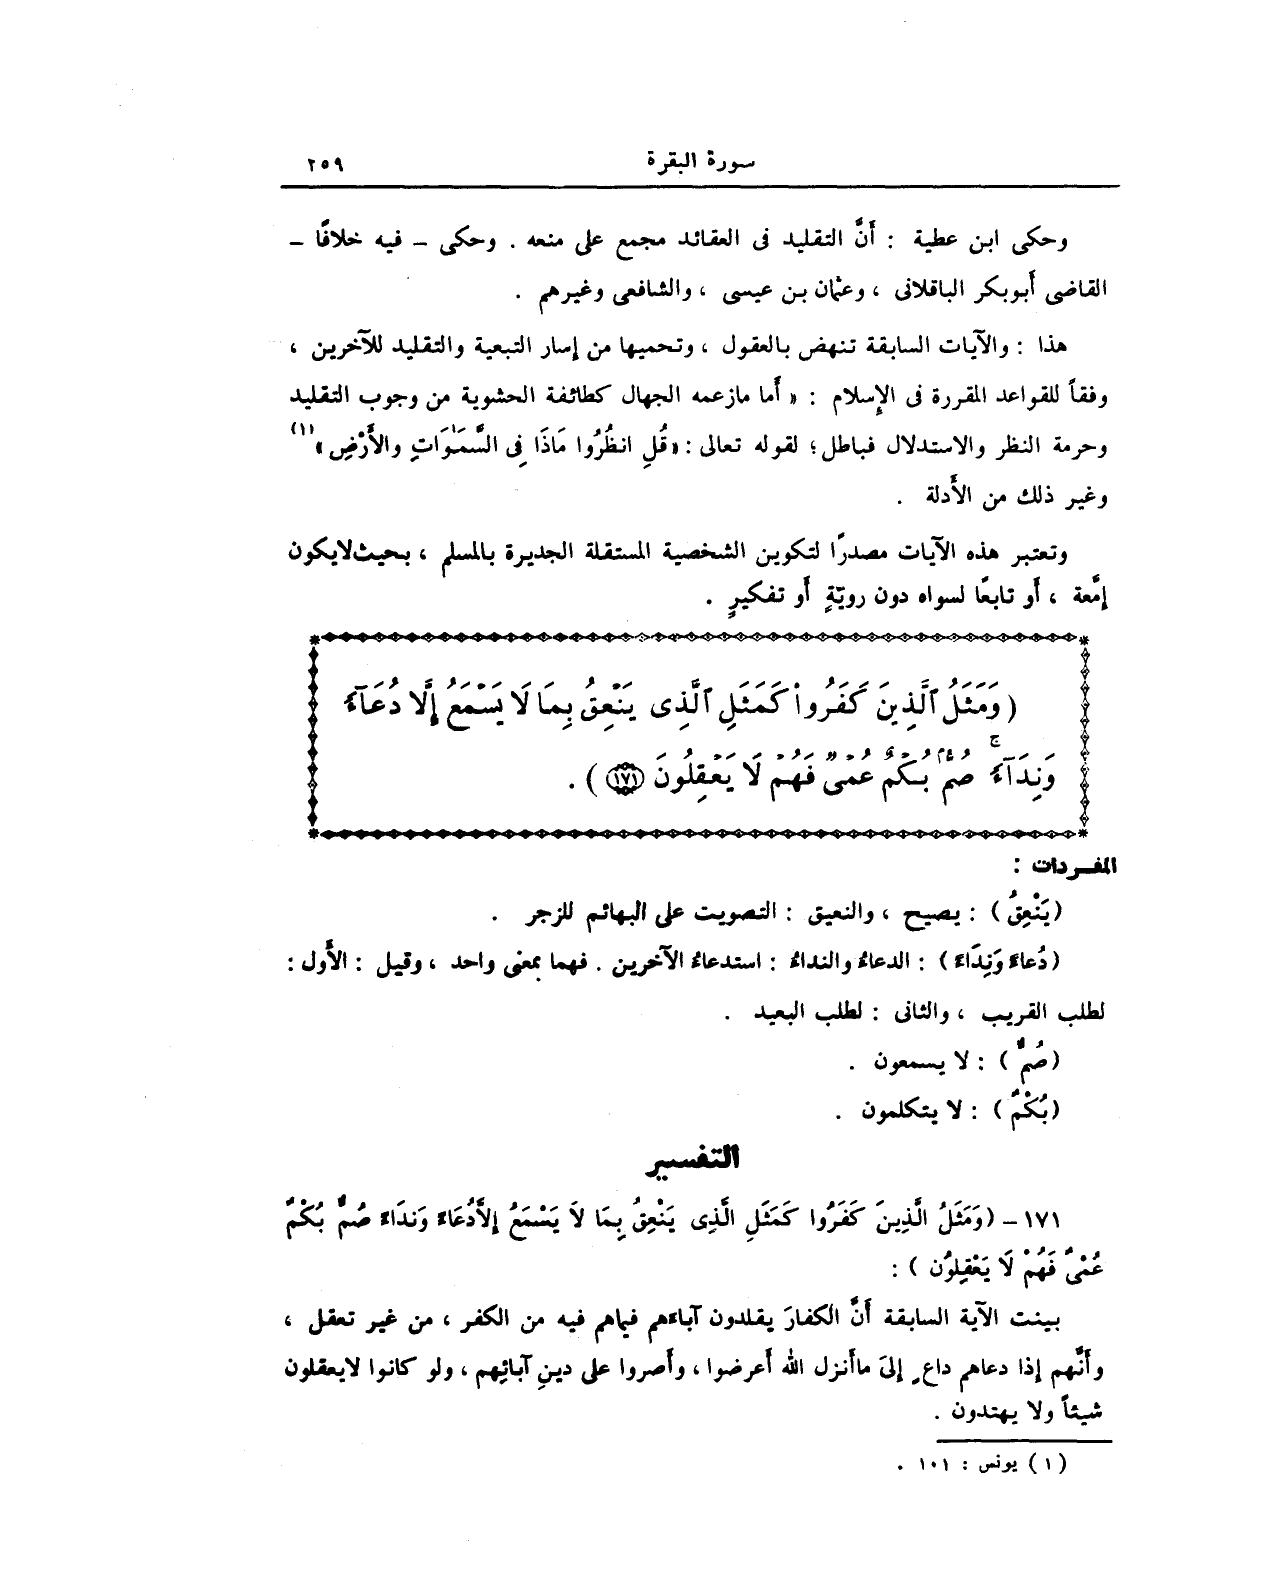 سورة البقرة ٢٥٩
وحكى ابن عطية : أَنَّ التقليد فى العقائد مجمع على منعه . وحكى – فيه خلافًا –
القاضى أَبوبكر الباقلانى ، وعثمان بن عيسى ، والشافعى وغيرهم .
هذا : والآيات السابقة تنهض بالعقول ، وتحميها من إسار التبعية والتقليد للآخرين ،
وفقاً للقواعد المقررة فى الإِسلام : « أَما مازعمه الجهال كطائفة الحشوية من وجوب التقليد
وحرمة النظر والاستدلال فباطل؛ لقوله تعالى : «قُلِ انظُرُوا مَاذَا فِى السَّمَٰوَاتِ والأَرْضِ» (١)
وغير ذلك من الأَدلة .
وتعتبر هذه الآيات مصدرًا لتكوين الشخصية المستقلة الجديرة بالمسلم ، بحيث لايكون
إمَّعة ، أَو تابعًا لسواه دون رويّةٍ أَو تفكيرٍ .
(وَمَثَلُ ٱلَّذِينَ كَفَرُوا۟ كَمَثَلِ ٱلَّذِى يَنْعِقُ بِمَا لَا يَسْمَعُ إِلَّا دُعَآءً
وَنِدَآءً ۚ صُمٌّۢ بُكْمٌ عُمْىٌ فَهُمْ لَا يَعْقِلُونَ ﴿١٧١﴾) .
المفـردات :
(يَنْعِقُ) : يصيح ، والنعيق : التصويت على البهائم للزجر .
(دُعاءً وَنِدَاءً) : الدعاءُ والنداءُ : استدعاءُ الآخرين . فهما بمعنى واحد ، وقيل : الأَول :
لطلب القريب ، والثانى : لطلب البعيد .
(صُمٌّ) : لا يسمعون .
(بُكْمٌ) : لا يتكلمون .
التفسير
١٧١ – (وَمَثَلُ الَّذِينَ كَفَرُوا كَمَثَلِ الَّذِى يَنْعِقُ بِمَا لَا يَسْمَعُ إِلاَّدُعَاءً وَنِدَاءً صُمٌّ بُكْمٌ
عُمْىٌ فَهُمْ لَا يَعْقِلُون ) :
بينت الآية السابقة أَنَّ الكفارَ يقلدون آباءَهم فيماهم فيه من الكفر ، من غير تعقل ،
وأَنَّهم إِذا دعاهم داعٍ إِلىَ ماأَنزل الله أَعرضوا ، وأَصروا على دينِ آبائِهم ، ولو كانوا لايعقلون
شيئاً ولا يهتدون .
(١) يونس : ١٠١ .